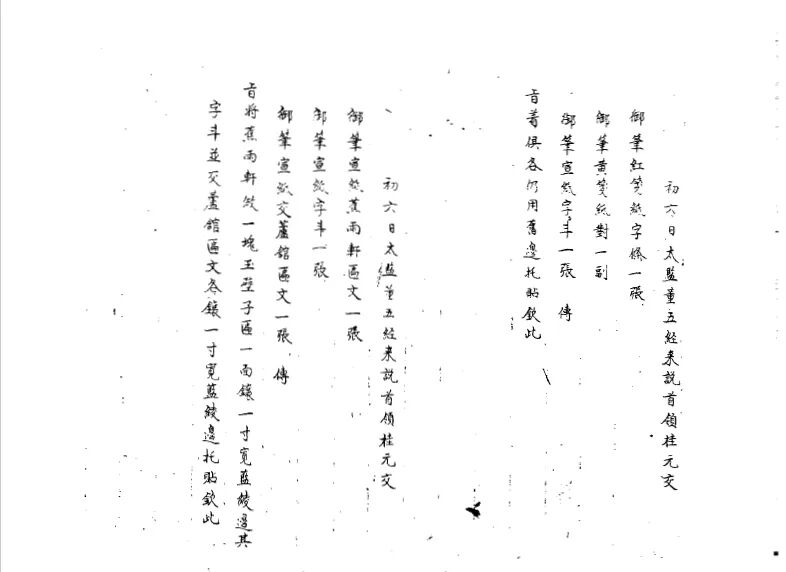 初六日太監董五経来説首領桂元交
御筆紅箋紙字條一張
御筆黄箋紙對一副
御筆宣紙字斗一張 傳
旨着俱各仍用舊邊托貼欽此
初六日太監董五経来説首領桂元交
御筆宣紙蕉雨軒匾文一張
御筆宣紙字斗一張
御筆宣紙交蘆舘匾文一張 傳
旨將蕉雨軒做一塊玉壁子匾一面鑲一寸寬藍綾邊其
字斗並交蘆舘匾文各鑲一寸寬藍綾邊托貼欽此